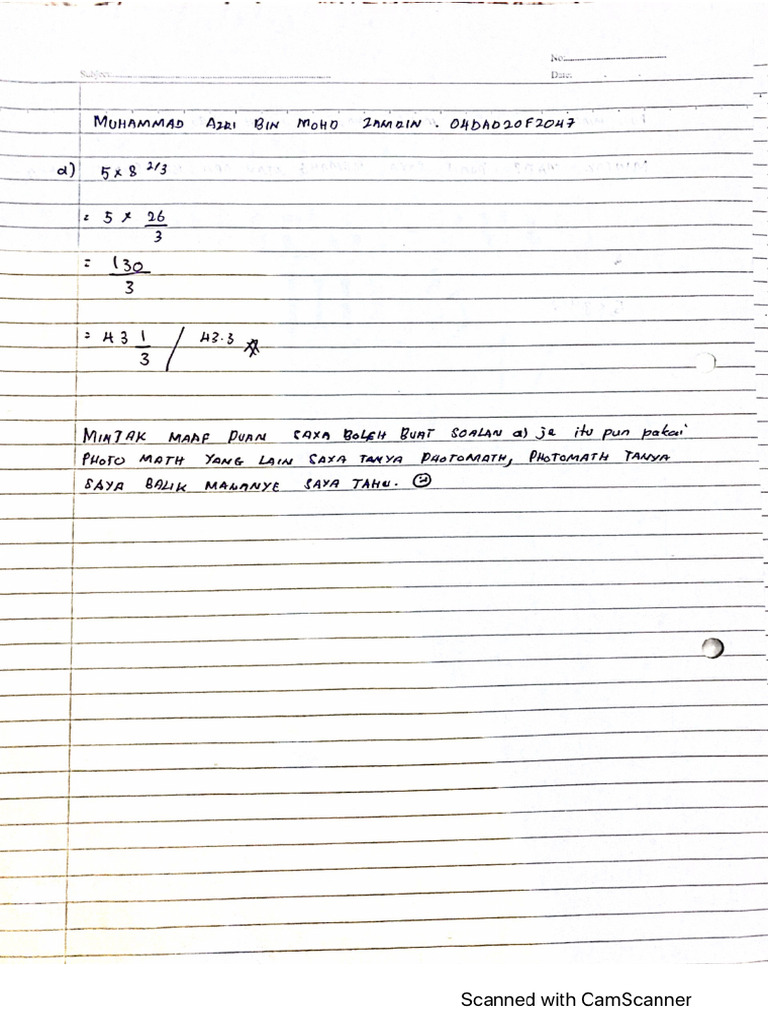 No:
Subject:
Date:
MUHAMMAD AZRI BIN MOHD ZAMRIN . 04DAD20F2047
a) 5 × 8 2/3
= 5 × 26/3
= 130/3
= 43 1/3 / 43.3
MINTAK MAAF PUAN SAYA BOLEH BUAT SOALAN a) je itu pun pakai
PHOTO MATH YANG LAIN SAYA TANYA PHOTOMATH, PHOTOMATH TANYA
SAYA BALIK MANANYE SAYA TAHU.
Scanned with CamScanner